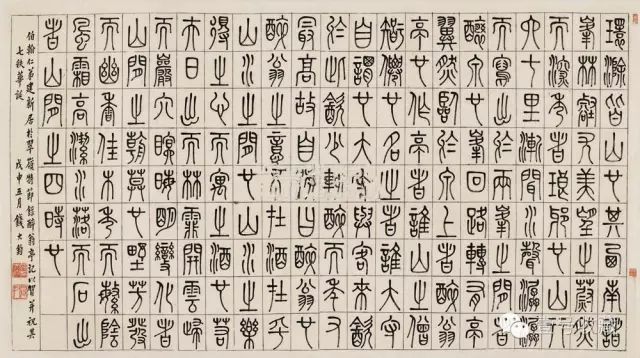 環滁皆山也其西南諸
峯林壑尤美望之蔚然
而深秀者琅邪也山行
六七里漸聞水聲潺潺
而瀉出於兩峯之間者
釀泉也峯回路轉有亭
翼然臨於泉上者醉翁
亭也作亭者誰山之僧
智僊也名之者誰太守
自謂也太守與客來飲
於此飲少輒醉而年又
最高故自號曰醉翁也
醉翁之意不在酒在乎
山水之間也山水之樂
得之心而寓之酒也若
夫日出而林霏開雲歸
而巖穴暝晦明變化者
山間之朝莫也野芳發
而幽香佳木秀而繁陰
風霜高潔水落而石出
者山間之四時也
伯翰仁弟建新居於翠嶺特節錄醉翁亭記以賀并祝其
七秩華誕 戊申五月 錢大鈞